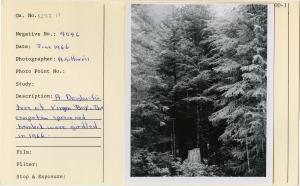 Ca. No. 
Negative No.: 9096
Date: June 1966
Photographer: A.S. Harris
Photo Point No.:
Study:
Description: A
tree at Virgin Bay. The
competing spruce and
hemlock were girdled
in 1966.
Film:
Filter:
Stop & Exposure: